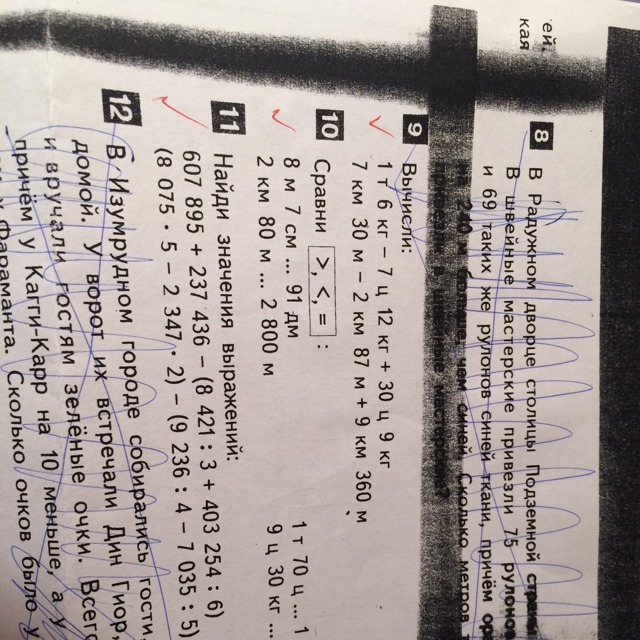 ей,
кая
8 В Радужном дворце столицы Подземной
В швейные мастерские привезли 75
и 69 таких же рулонов синей ткани, причём
240 чем синей. Сколько метров
привезли в швейные мастерские?
9 Вычисли:
1 т 6 кг – 7 ц 12 кг + 30 ц 9 кг
7 км 30 м – 2 км 87 м + 9 км 360 м
10 Сравни >, <, = :
8 м 7 см ... 91 дм 1 т 70 ц ... 1
2 км 80 м ... 2 800 м 9 ц 30 кг ...
11 Найди значения выражений:
607 895 + 237 436 – (8 421 : 3 + 403 254 : 6)
(8 075 · 5 – 2 347 · 2) – (9 236 : 4 – 7 035 : 5)
12 В Изумрудном городе собирались гости,
домой. У ворот их встречали Дин Гиор,
и вручали гостям зелёные очки. Всего
причём у Кагги-Карр на 10 меньше, а у
Фараманта. Сколько очков было у